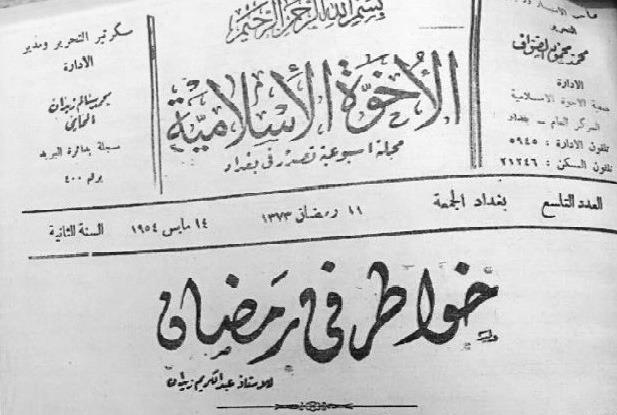 بسم الله الرحمن الرحيم
صاحب الامتياز
التحرير
محمد محمود الصواف
الادارة
جمعية الاخوة الاسلامية
المركز العام - بغداد
تلفون الادارة : ٥٩٤٥
تلفون السكن : ٢١٢٤٦
الأخوة الأسلامية
مجلة اسبوعية تصدر في بغداد
سكرتير التحرير ومدير
الادارة
محمد سالم زيدان
المحامي
سجلة بدائرة البريد
برقم ٤٠٠
العدد التاسع بغداد الجمعة ١١ رمضان ١٣٧٣ ١٤ مايس ١٩٥٤ السنة الثانية
خواطر في رمضان
للاستاذ عبدالكريم زيدان